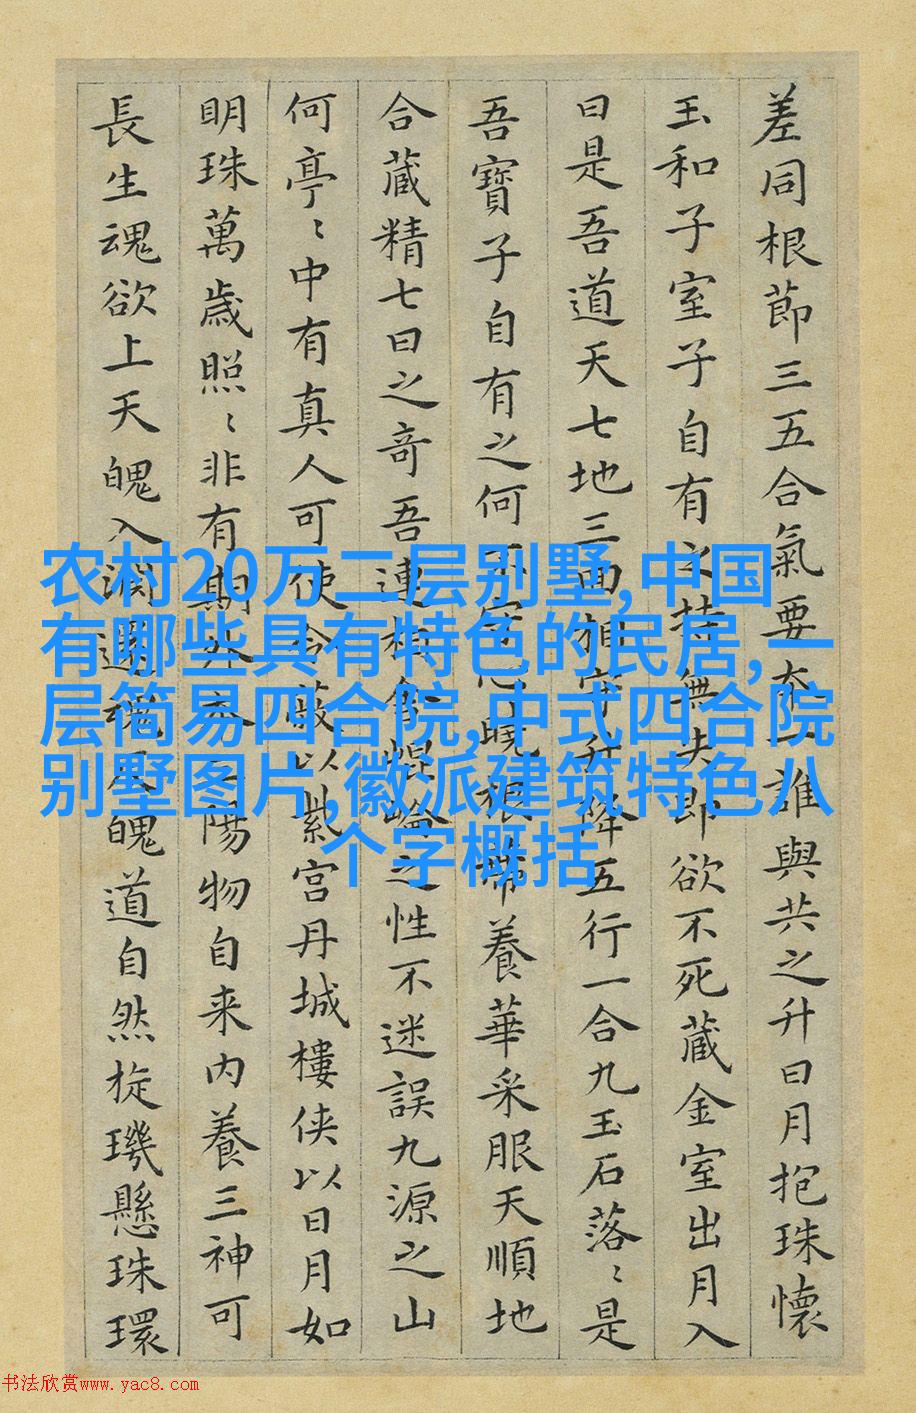 差同根節三五合氣要夲一誰與共之升日月抱珠懷
玉和子室子自有之持無失即欲不死藏金室出月入
日是吾道天七地三囬相守升降五行一合九玉石落〻是
吾寶子自有之何不守心曉根蔕養華采服天順地
合藏精七日之奇吾連相舍崐崘之性不迷誤九源之山
何亭〻中有真人可使令蔽以紫宮丹城樓俠以日月如
明珠萬歲照〻非有期外陽物自来内養三神可
長生魂欲上天魄入淵還魂魄道自然旋璣懸珠環
农村20万二层别墅,中国
有哪些具有特色的民居,一
层简易四合院,中式四合院
别墅图片,徽派建筑特色八
个字概括
书法欣赏www.yac8.com